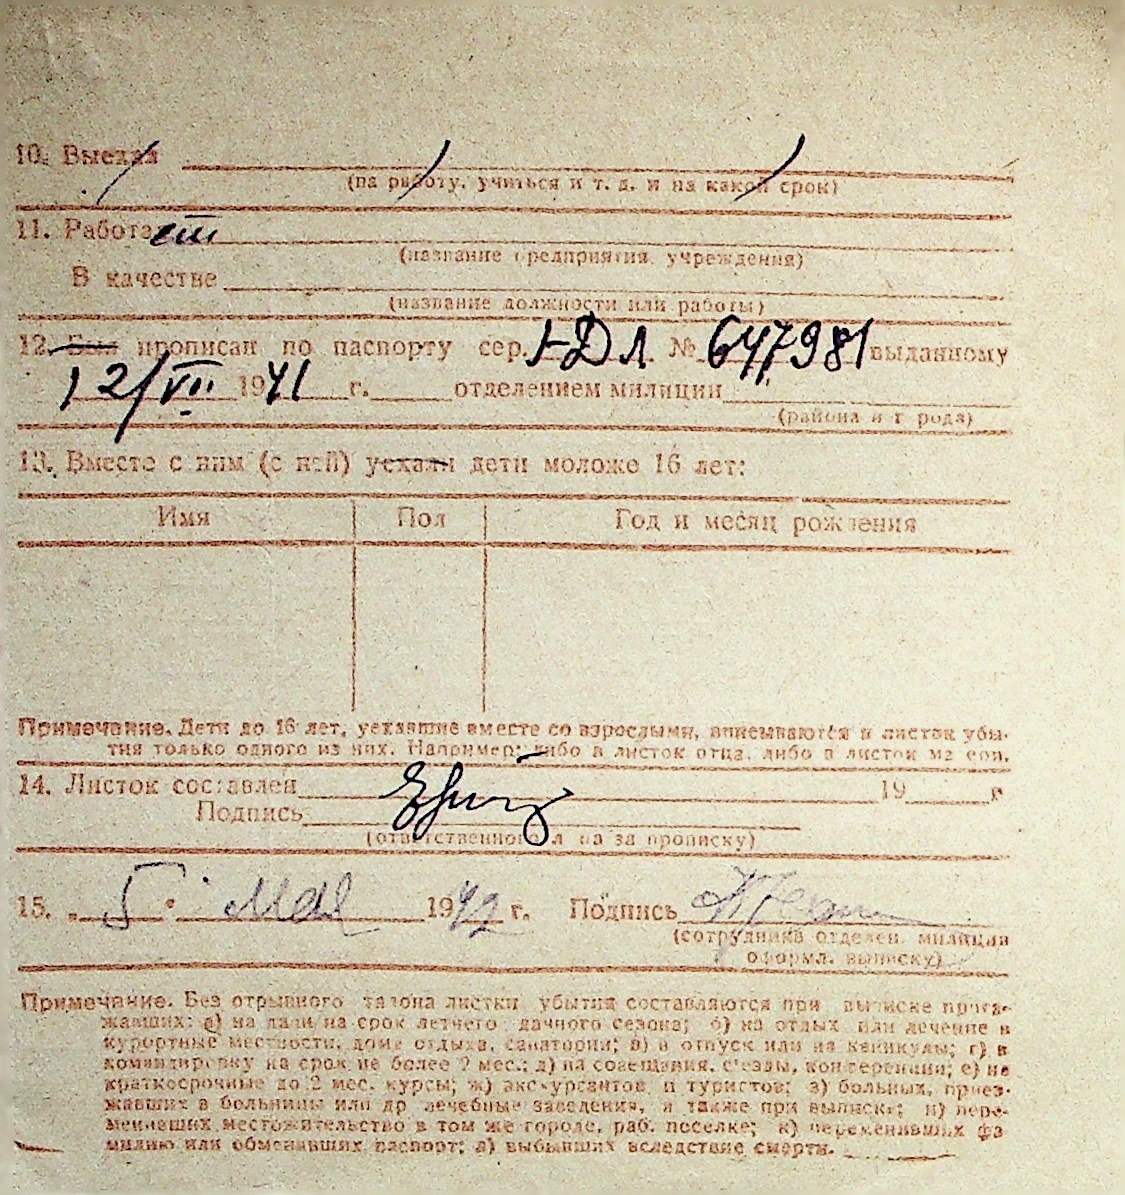 10. Выехал
(на работу, учиться и т. д. и на какой срок)
11. Работает
(название предприятия, учреждения)
В качестве
(название должности или работы)
12. Был прописан по паспорту сер. № 647981 выданному
12/VII 1941 г. отделением милиции
(района и города)
13. Вместе с ним (с ней) уехали дети моложе 16 лет:
Имя Пол Год и месяц рождения
Примечание. Дети до 16 лет, уехавшие вместе со взрослыми, вписываются в листок убы-
тия только одного из них. Например: либо в листок отца, либо в листок матери.
14. Листок составлен 19 г.
Подпись
(ответственного лица за прописку)
15. „ 5 " мая 1942 г. Подпись
(сотрудника отделен. милиции
оформл. выписку)
Примечание. Без отрывного талона листки убытия составляются при выписке приез-
жавших: а) на дачи на срок летнего дачного сезона; б) на отдых или лечение в
курортные местности, дома отдыха, санатории; в) в отпуск или на каникулы; г) в
командировку на срок не более 2 мес.; д) на совещания, съезды, конференции; е) на
краткосрочные до 2 мес. курсы; ж) экскурсантов и туристов; з) больных, приез-
жавших в больницы или др лечебные заведения, а также при выписке: и) пере-
менивших местожительство в том же городе, раб. поселке; к) переменивших фа
милию или обменявших паспорт; л) выбывших вследствие смерти.